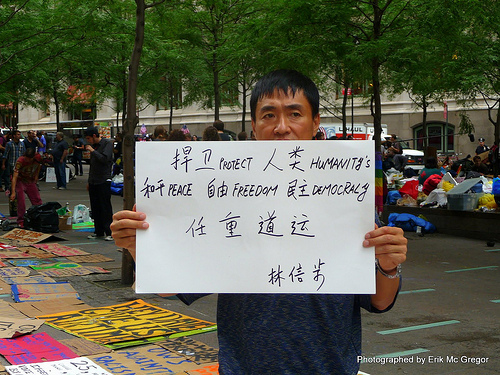 捍卫 PROTECT 人类 HUMANITY'S
和平 PEACE 自由 FREEDOM 民主 DEMOCRALY
任重道运
林信步
UHAUL
Photographed by Erik Mc Gregor